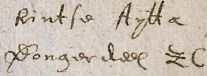 Rintse Aytta
Dongerdeel